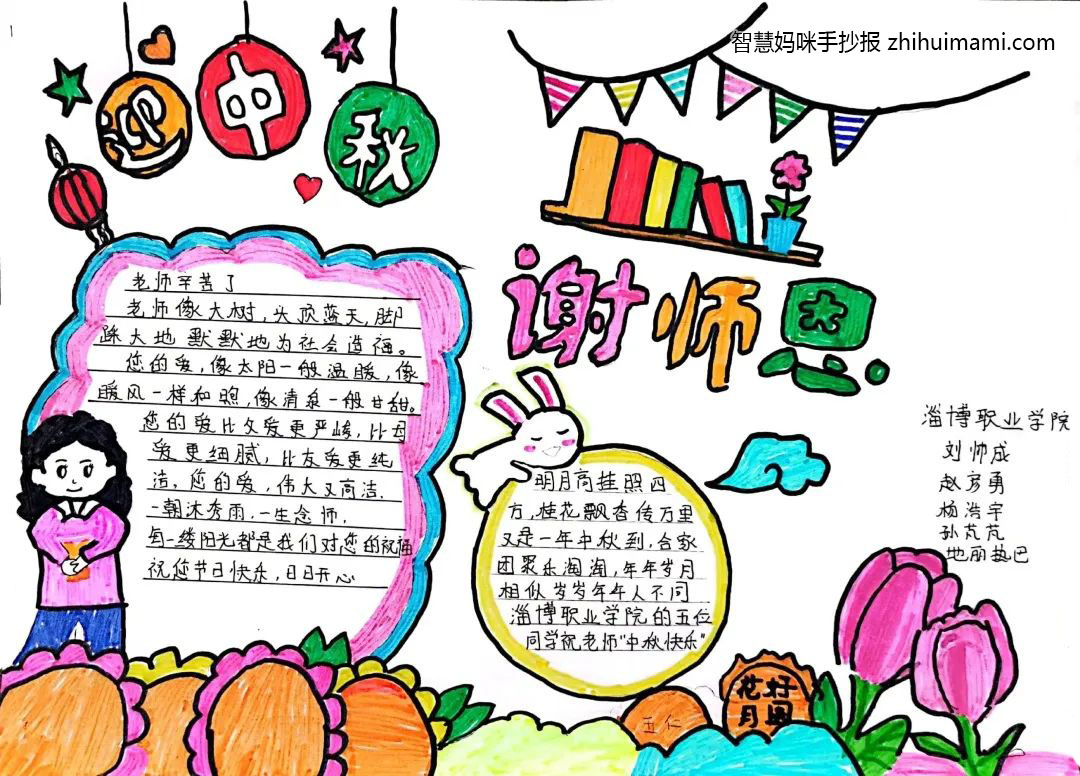 智慧妈咪手抄报 zhihuimami.com
迎中秋
谢师恩
老师辛苦了
老师像大树，头顶蓝天，脚
踩大地默默地为社会造福。
您的爱，像太阳一般温暖，像
暖风一样和煦，像清泉一般甘甜。
您的爱比父爱更严峻，比母
爱更细腻，比友爱更纯
洁。您的爱，伟大又高洁.
一朝沐秀雨，一生念师.
每一缕阳光都是我们对您的祝福
祝您节日快乐，日日开心
明月高挂照四
方，桂花飘香传万里
又是一年中秋到，合家
团聚乐淘淘，年年岁月
相似岁岁年年人不同
淄博职业学院的五位
同学祝老师“中秋快乐”
淄博职业学院
刘帅成
赵彦勇
杨浩宇
孙芃芃
地丽热巴
五仁
花好
月圆